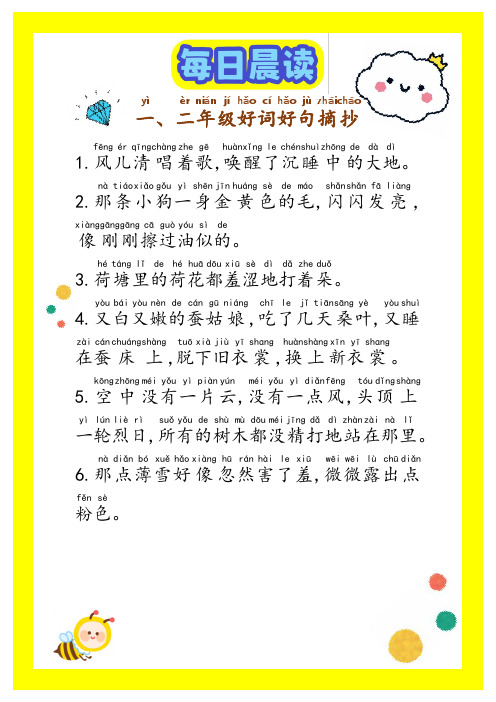 每日晨读
yì èr nián jí hǎo cí hǎo jù zhāichāo
一、二年级好词好句摘抄
fēng ér qīngchàng zhe gē huànxǐng le chénshuìzhōng de dà dì
1.风儿清唱着歌,唤醒了沉睡中的大地。
nà tiáoxiǎo gǒu yì shēn jīn huáng sè de máo shǎnshǎn fā liàng
2.那条小狗一身金黄色的毛,闪闪发亮,
xiànggānggāng cā guò yóu sì de
像刚刚擦过油似的。
hé táng lǐ de hé huā dōu xiū sè dì dǎ zhe duǒ
3.荷塘里的荷花都羞涩地打着朵。
yòu bái yòu nèn de cán gū niáng chī le jǐ tiānsāng yè yòu shuì
4.又白又嫩的蚕姑娘,吃了几天桑叶,又睡
zài cán chuángshàng tuō xià jiù yī shang huànshàng xīn yī shang
在蚕床上,脱下旧衣裳,换上新衣裳。
kōng zhōng méi yǒu yì piàn yún méi yǒu yì diǎnfēng tóu dǐng shàng
5.空中没有一片云,没有一点风,头顶上
yì lún liè rì suǒ yǒu de shù mù dōu méi jīng dǎ dì zhàn zài nà lǐ
一轮烈日,所有的树木都没精打地站在那里。
nà diǎn bó xuě hǎo xiàng hū rán hài le xiū wēi wēi lù chū diǎn
6.那点薄雪好像忽然害了羞,微微露出点
fěn sè
粉色。